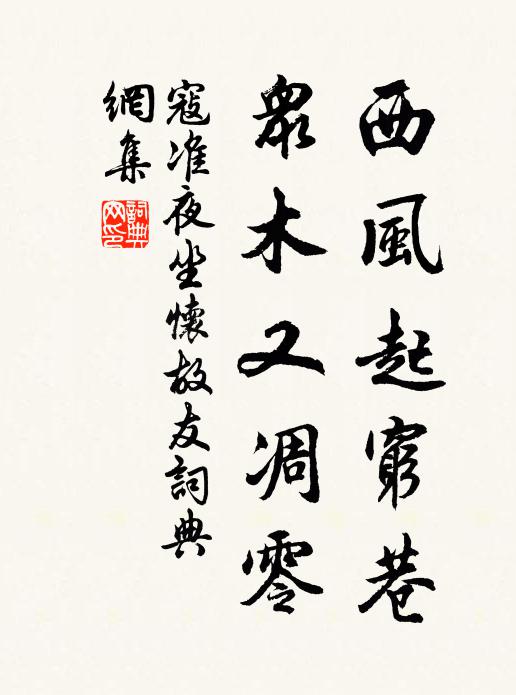 西風起窮巷
衆木又凋零
寇准夜坐懷故友詞典
網集
詞典網印